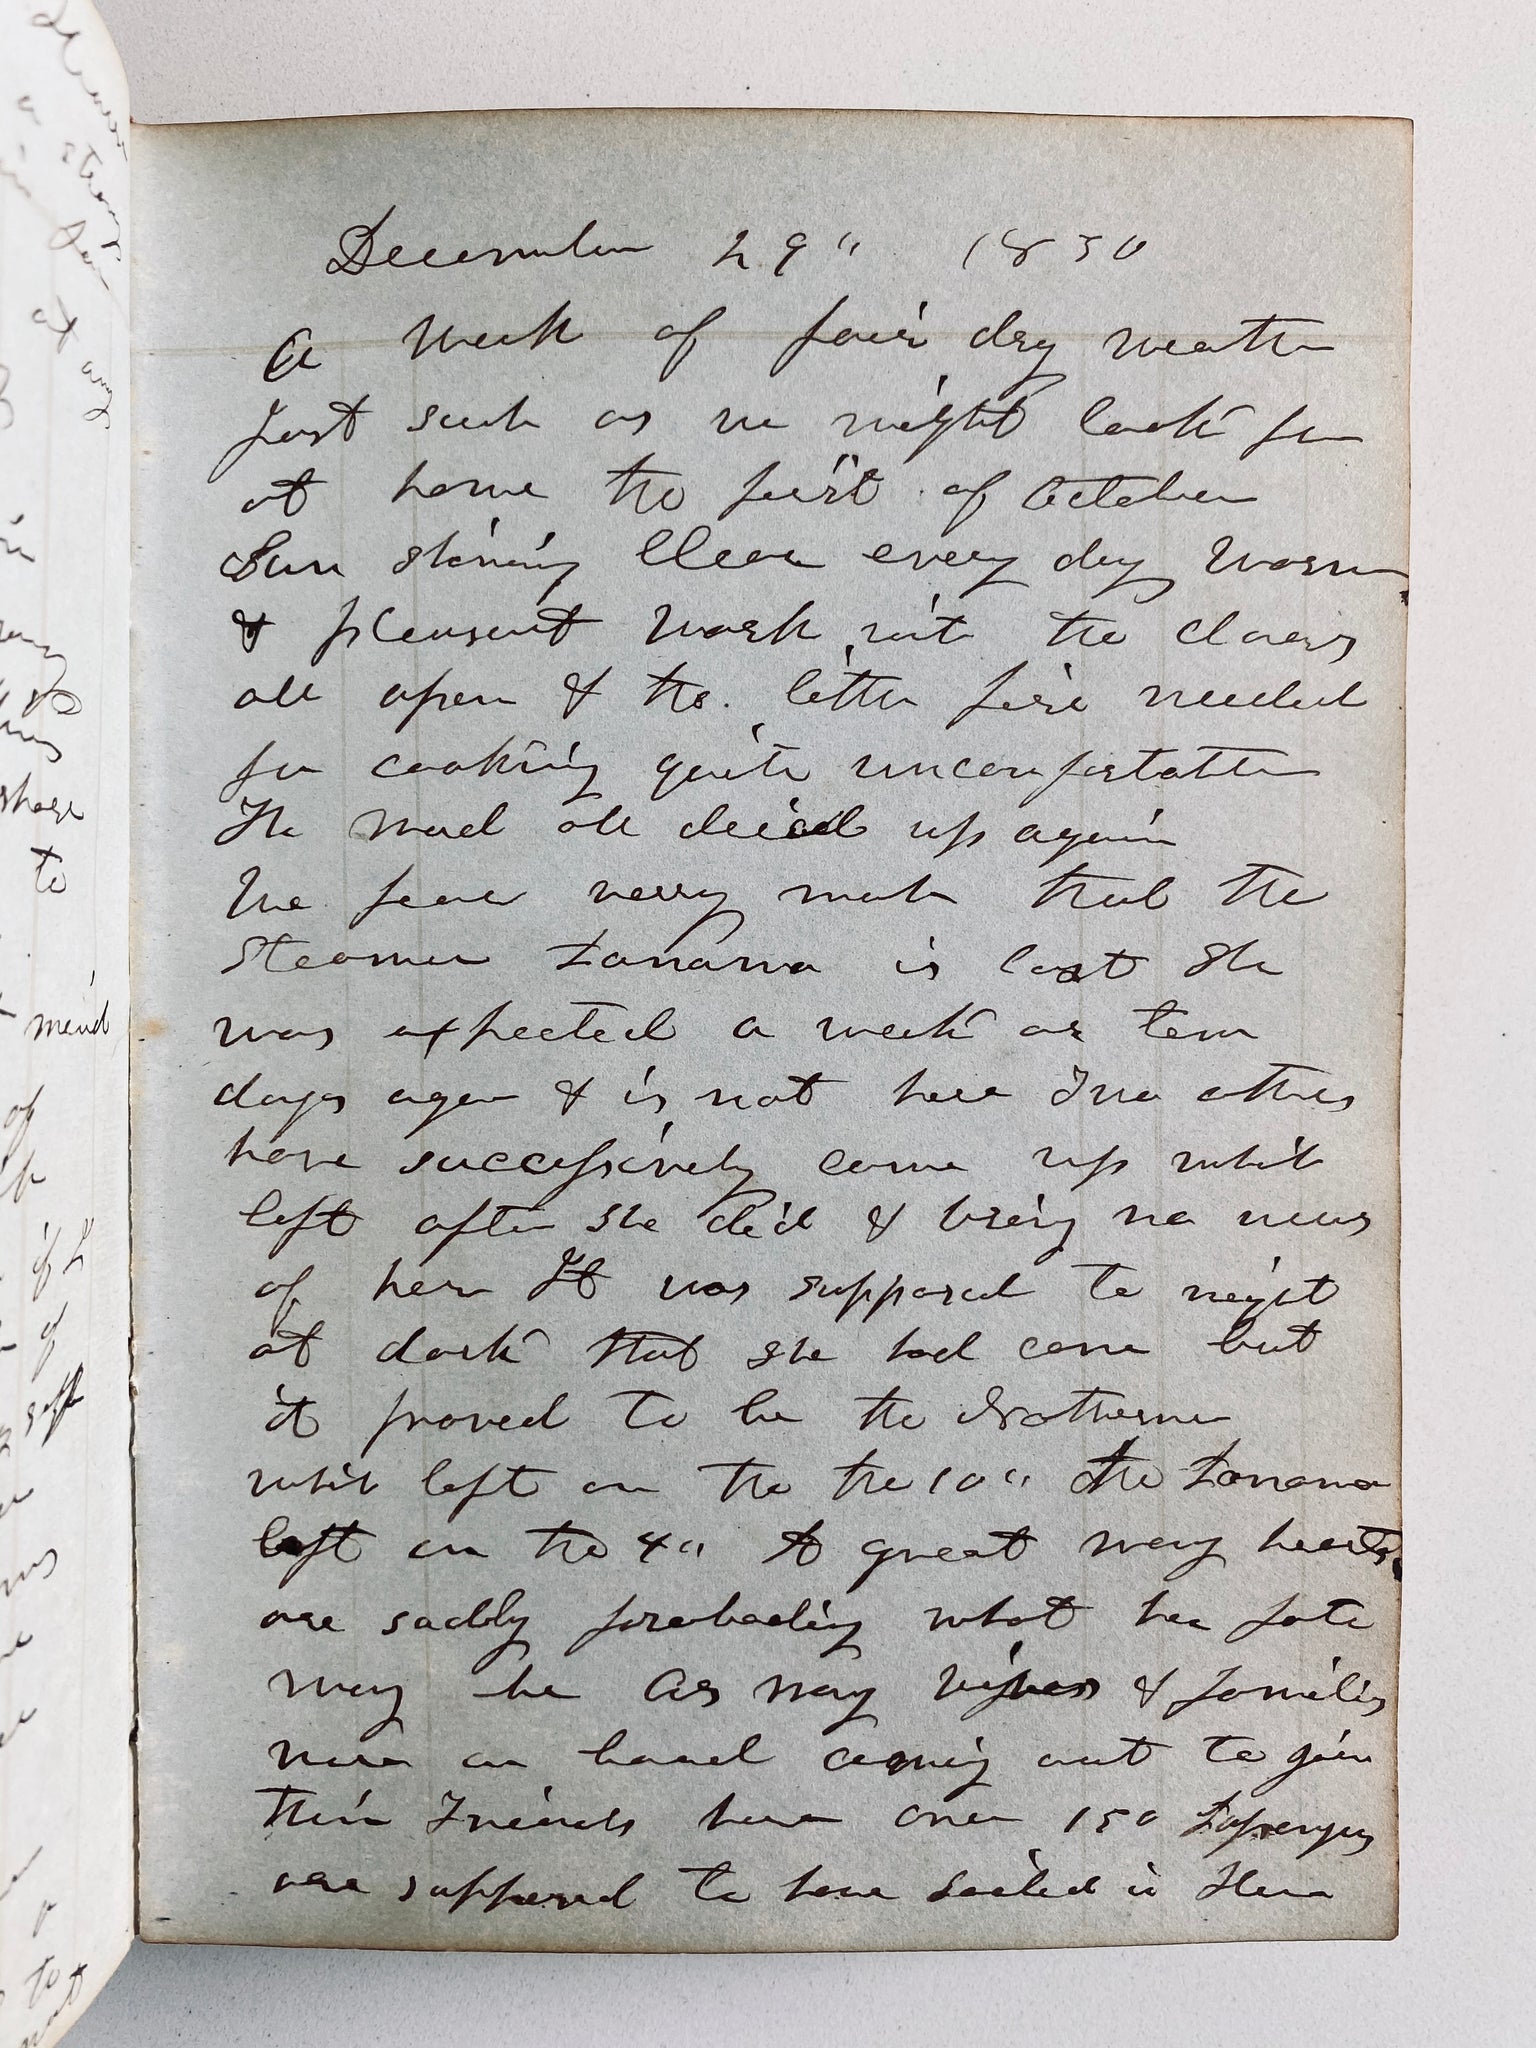 December 29" 1850
A week of fair dry weather
Just such as we might look for
at home the first of October
Sun shining Clear every day Warm
& pleasent Work with the doors
all open & the little fire needed
for cooking quite uncomfortable
The mud all dried up again
We fear verry much that the
Steamer is lost She
was expected a week or ten
days ago & is not here Two others
have successively come up which
left after she did & bring no news
of her It was supposed to night
at dark that she had come but
it proved to be the
which left on the the 10" the
left on the 4" A great many hearts
are sadly foreboding what her fate
may be As many wives & families
were on board coming out to join
their Friends here over 150
are supposed to have sailed in Her
mind
of
to
if I
of